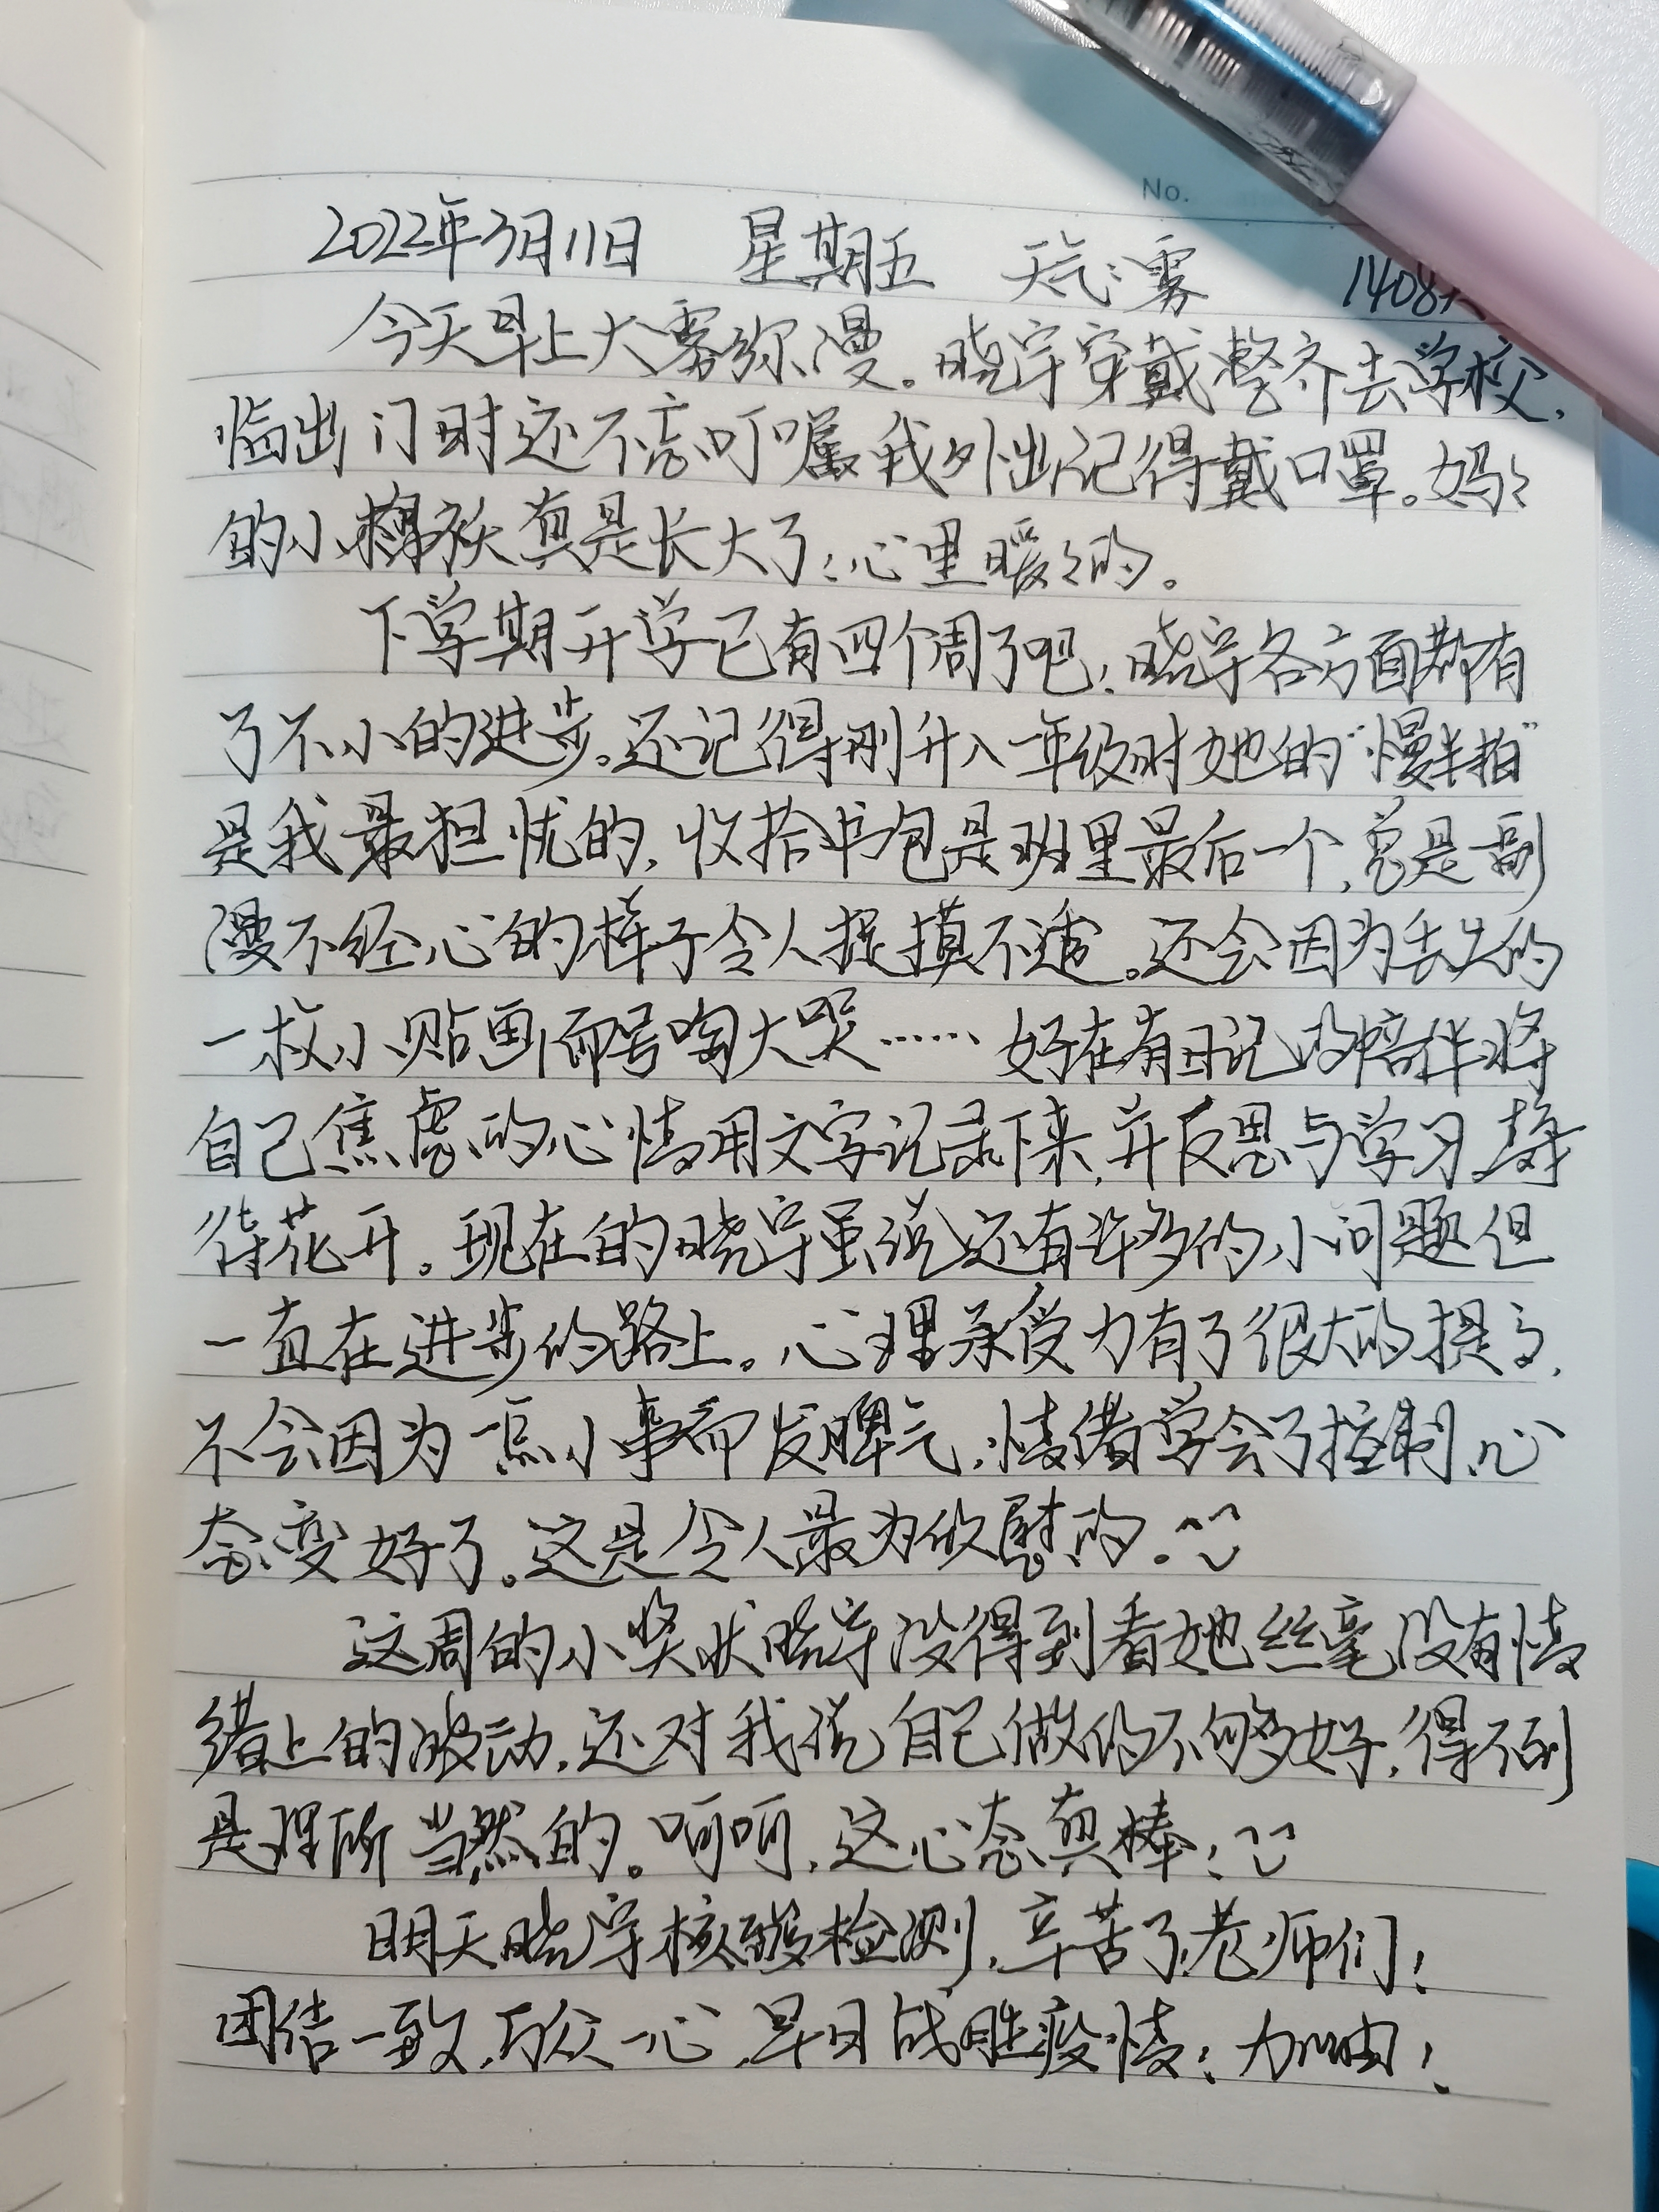 No.
2022年3月11日 星期五 天气:雾 1408天
今天早上大雾弥漫。晓宇穿戴整齐去学校,
临出门时还不忘叮嘱我外出记得戴口罩。妈々
的小棉袄真是长大了!心里暖々的。
下学期开学已有四个周了吧!晓宇各方面都有
了不小的进步。还记得刚升入一年级时她的“慢半拍”
是我最担忧的,收拾书包是班里最后一个,总是一副
漫不经心的样子令人捉摸不透。还会因为丢失的
一枚小贴画而号啕大哭……好在有日记的陪伴将
自己焦虑的心情用文字记录下来,并反思与学习,静
待花开。现在的晓宇虽说还有许多的小问题但
一直在进步的路上。心理承受力有了很大的提高,
不会因为一点小事而发脾气,情绪学会了控制,心
态变好了。这是令人最为欣慰的。
这周的小奖状晓宇没得到看她丝毫没有情
绪上的波动,还对我说自己做的不够好,得不到
是理所当然的。呵呵,这心态真棒!
明天晓宇核酸检测,辛苦了老师们!
团结一致,万众一心,早日战胜疫情!加油!